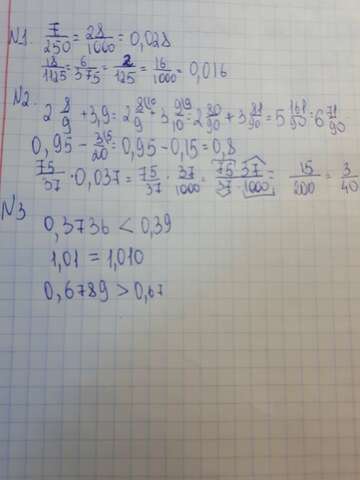 N1. 7/250 = 28/1000 = 0,028
18/1125 = 6/375 = 2/125 = 16/1000 = 0,016
N2. 2 8/9 + 3,9 = 2 8/9 + 3 9/10 = 2 80/90 + 3 81/90 = 5 161/90 = 6 71/90
0,95 - 3/20 = 0,95 - 0,15 = 0,8
75/37 · 0,037 = 75/37 · 37/1000 = 75 37/37 · 1000 = 15/200 = 3/40
N3
0,3736 < 0,39
1,01 = 1,010
0,6789 > 0,67